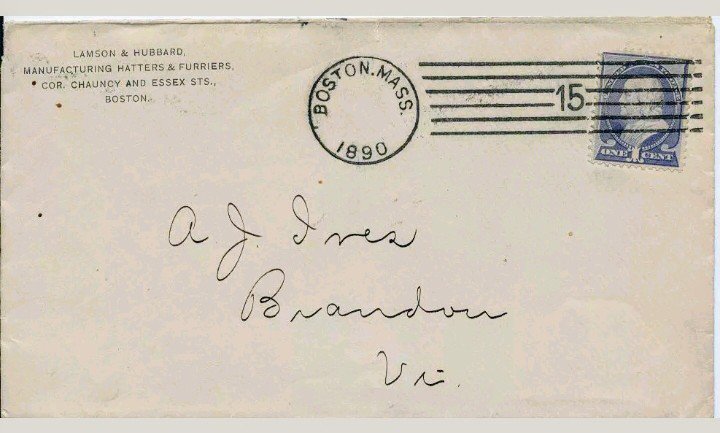 LAMSON & HUBBARD,
MANUFACTURING HATTERS & FURRIERS,
COR. CHAUNCY AND ESSEX STS.,
BOSTON.
BOSTON. MASS.
1890
15
ONE 1 CENT
A J. Ives
Brandon
Vt.